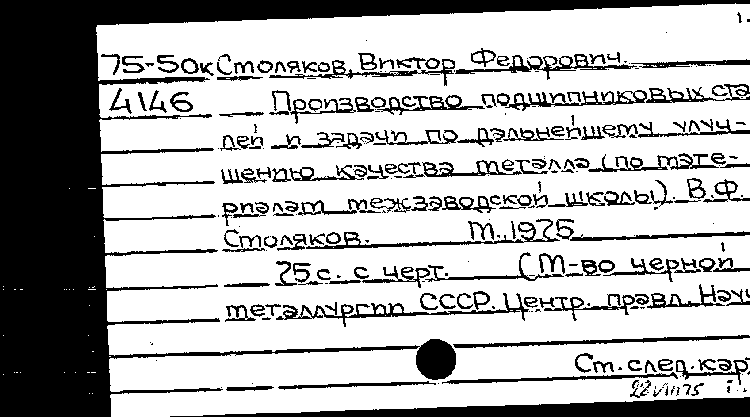 1.
75-50к Столяков, Виктор Федорович.
4146 Производство подшипниковых ста
лей и задачи по дальнейшему улуч-
шению качества металла (по мате-
риалам межзаводской школы). В.Ф.
Столяков. М. 1975.
75 с. с черт. (М-во черной
металлургии СССР. Центр. правл. Науч
Ст. след. кар